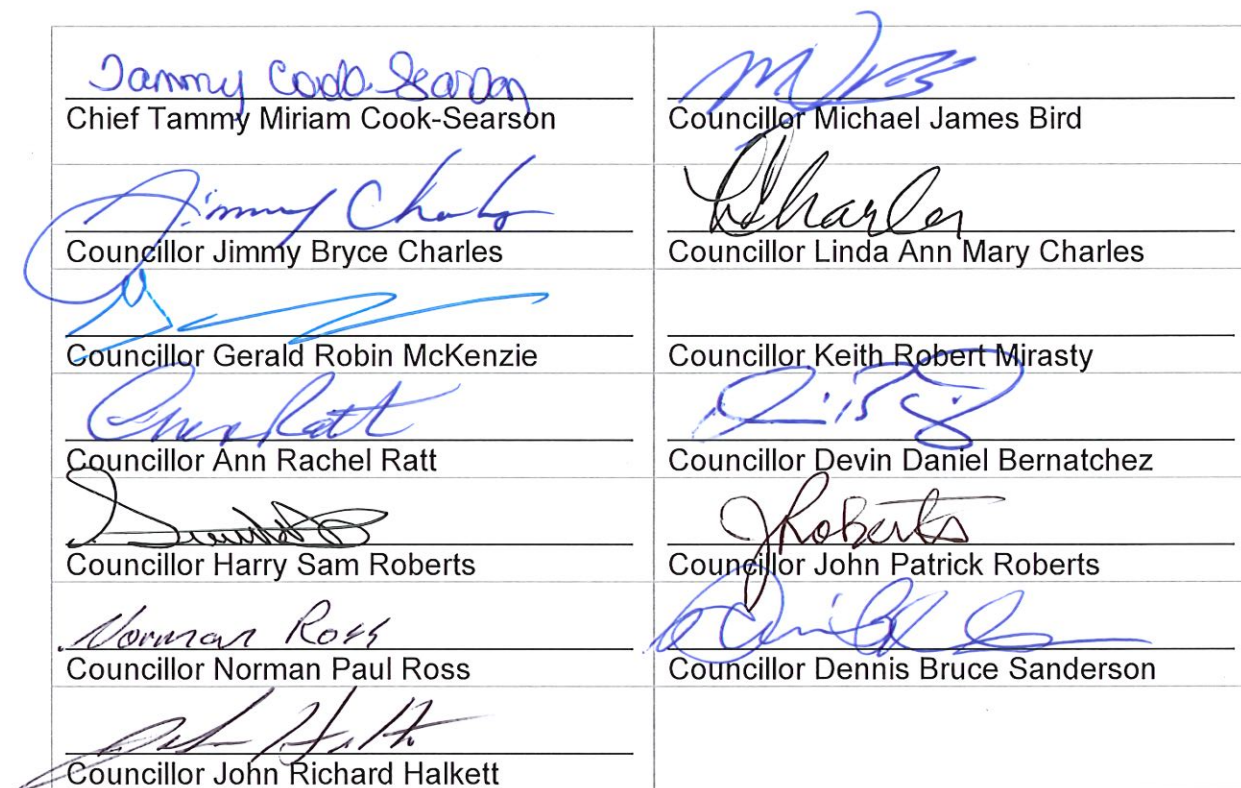 Tammy Cook-Searson
Chief Tammy Miriam Cook-Searson
Councillor Michael James Bird
Jimmy Charles
Councillor Jimmy Bryce Charles
LCharles
Councillor Linda Ann Mary Charles
Councillor Gerald Robin McKenzie
Councillor Keith Robert Mirasty
Ratt
Councillor Ann Rachel Ratt
Councillor Devin Daniel Bernatchez
Councillor Harry Sam Roberts
JRoberts
Councillor John Patrick Roberts
Norman Ross
Councillor Norman Paul Ross
Councillor Dennis Bruce Sanderson
John Halkett
Councillor John Richard Halkett